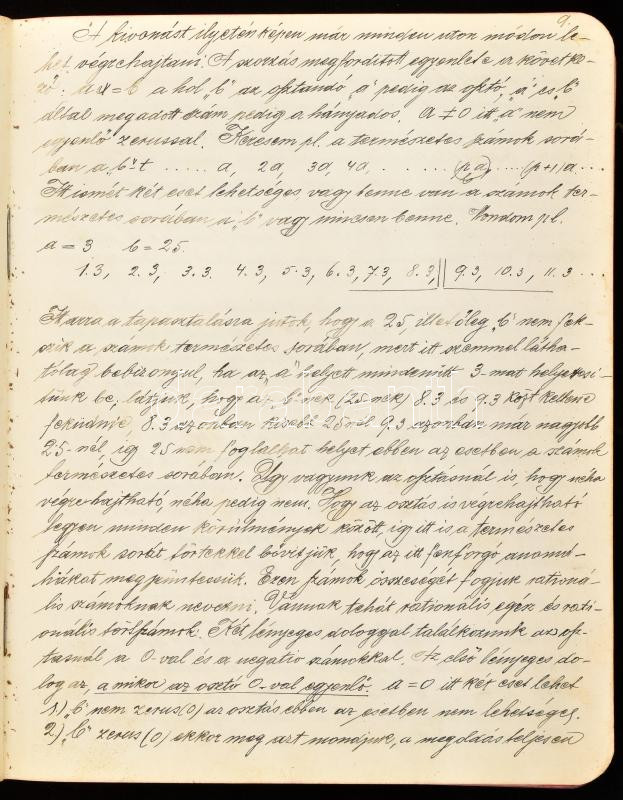 9.
A kivonást ilyetén képen már minden uton módon le-
het végrehajtani. A szorzás megforditott egyenlete a követke-
ző: a x = b a hol „b" az osztandó „a" pedig az osztó, „a" és „b"
által megadott szám pedig a hányados. a ≠ 0 itt „a" nem
egyenlő zerussal. Keresem pl. a természetes számok sorá-
ban a „b"-t ..... a, 2a, 3a, 4a, ...... (p a) .... (p+1)a ...
Itt ismét két eset lehetséges vagy benne van a számok ter-
mészetes sorában a „b" vagy nincsen benne. Mondom pl.
a = 3 b = 25.
1.3, 2.3, 3.3. 4.3, 5.3, 6.3, 7.3, 8.3, || 9.3, 10.3, 11.3 ...
Itt arra a tapasztalásra jutok, hogy a 25, illetőleg „b" nem fek-
szik a számok természetes sorában, mert itt szemmel látha-
tólag bebizonyul, ha az „a" helyett mindenütt 3-mat helyettesi-
tünk be, látjuk, hogy az „b"-nek (25-nek) 8.3 és 9.3 közt kellene
feküdnie, 8.3 azonban kisebb 25-nél 9.3 azonban már nagyobb
25-nél, igy 25 nem foglalhat helyet ebben az esetben a számok
természetes sorában. Ugy vagyunk az osztásnál is, hogy néha
végrehajtható, néha pedig nem. Hogy az osztás is végrehajtható
legyen minden körülmények között, igy itt is a természetes
számok sorát törtekkel bővitjük, hogy az itt fenforgó anomá-
liákat megszüntessük. Ezen számok összeségét fogjuk rationá-
lis számoknak nevezni. Vannak tehát rationális egész és rati-
onális törtszámok. Két lényeges dologgal találkozunk az osz-
tásnál a 0-val és a negativ számokkal. Az első lényeges do-
log az, a mikor az osztó 0-val egyenlő. a = 0 itt két eset lehet
1.) „b" nem zerus (0) az osztás ebben az esetben nem lehetséges.
2.) „b" zerus (0) ekkor meg azt mondjuk, a megoldás teljesen